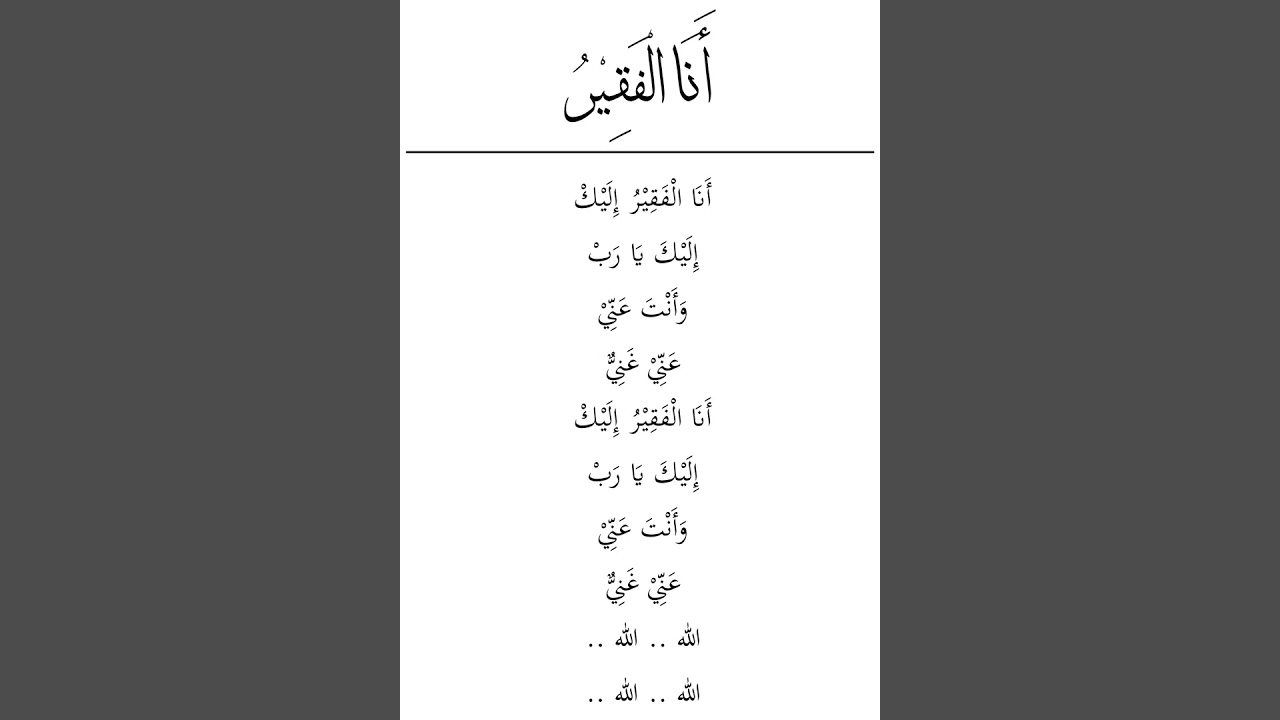 أَنَا الْفَقِيْرُ
أَنَا الْفَقِيْرُ إِلَيْكْ
إِلَيْكَ يَا رَبْ
وَأَنْتَ عَنِّيْ
عَنِّيْ غَنِيٌّ
أَنَا الْفَقِيْرُ إِلَيْكْ
إِلَيْكَ يَا رَبْ
وَأَنْتَ عَنِّيْ
عَنِّيْ غَنِيٌّ
الله .. الله ..
الله .. الله ..